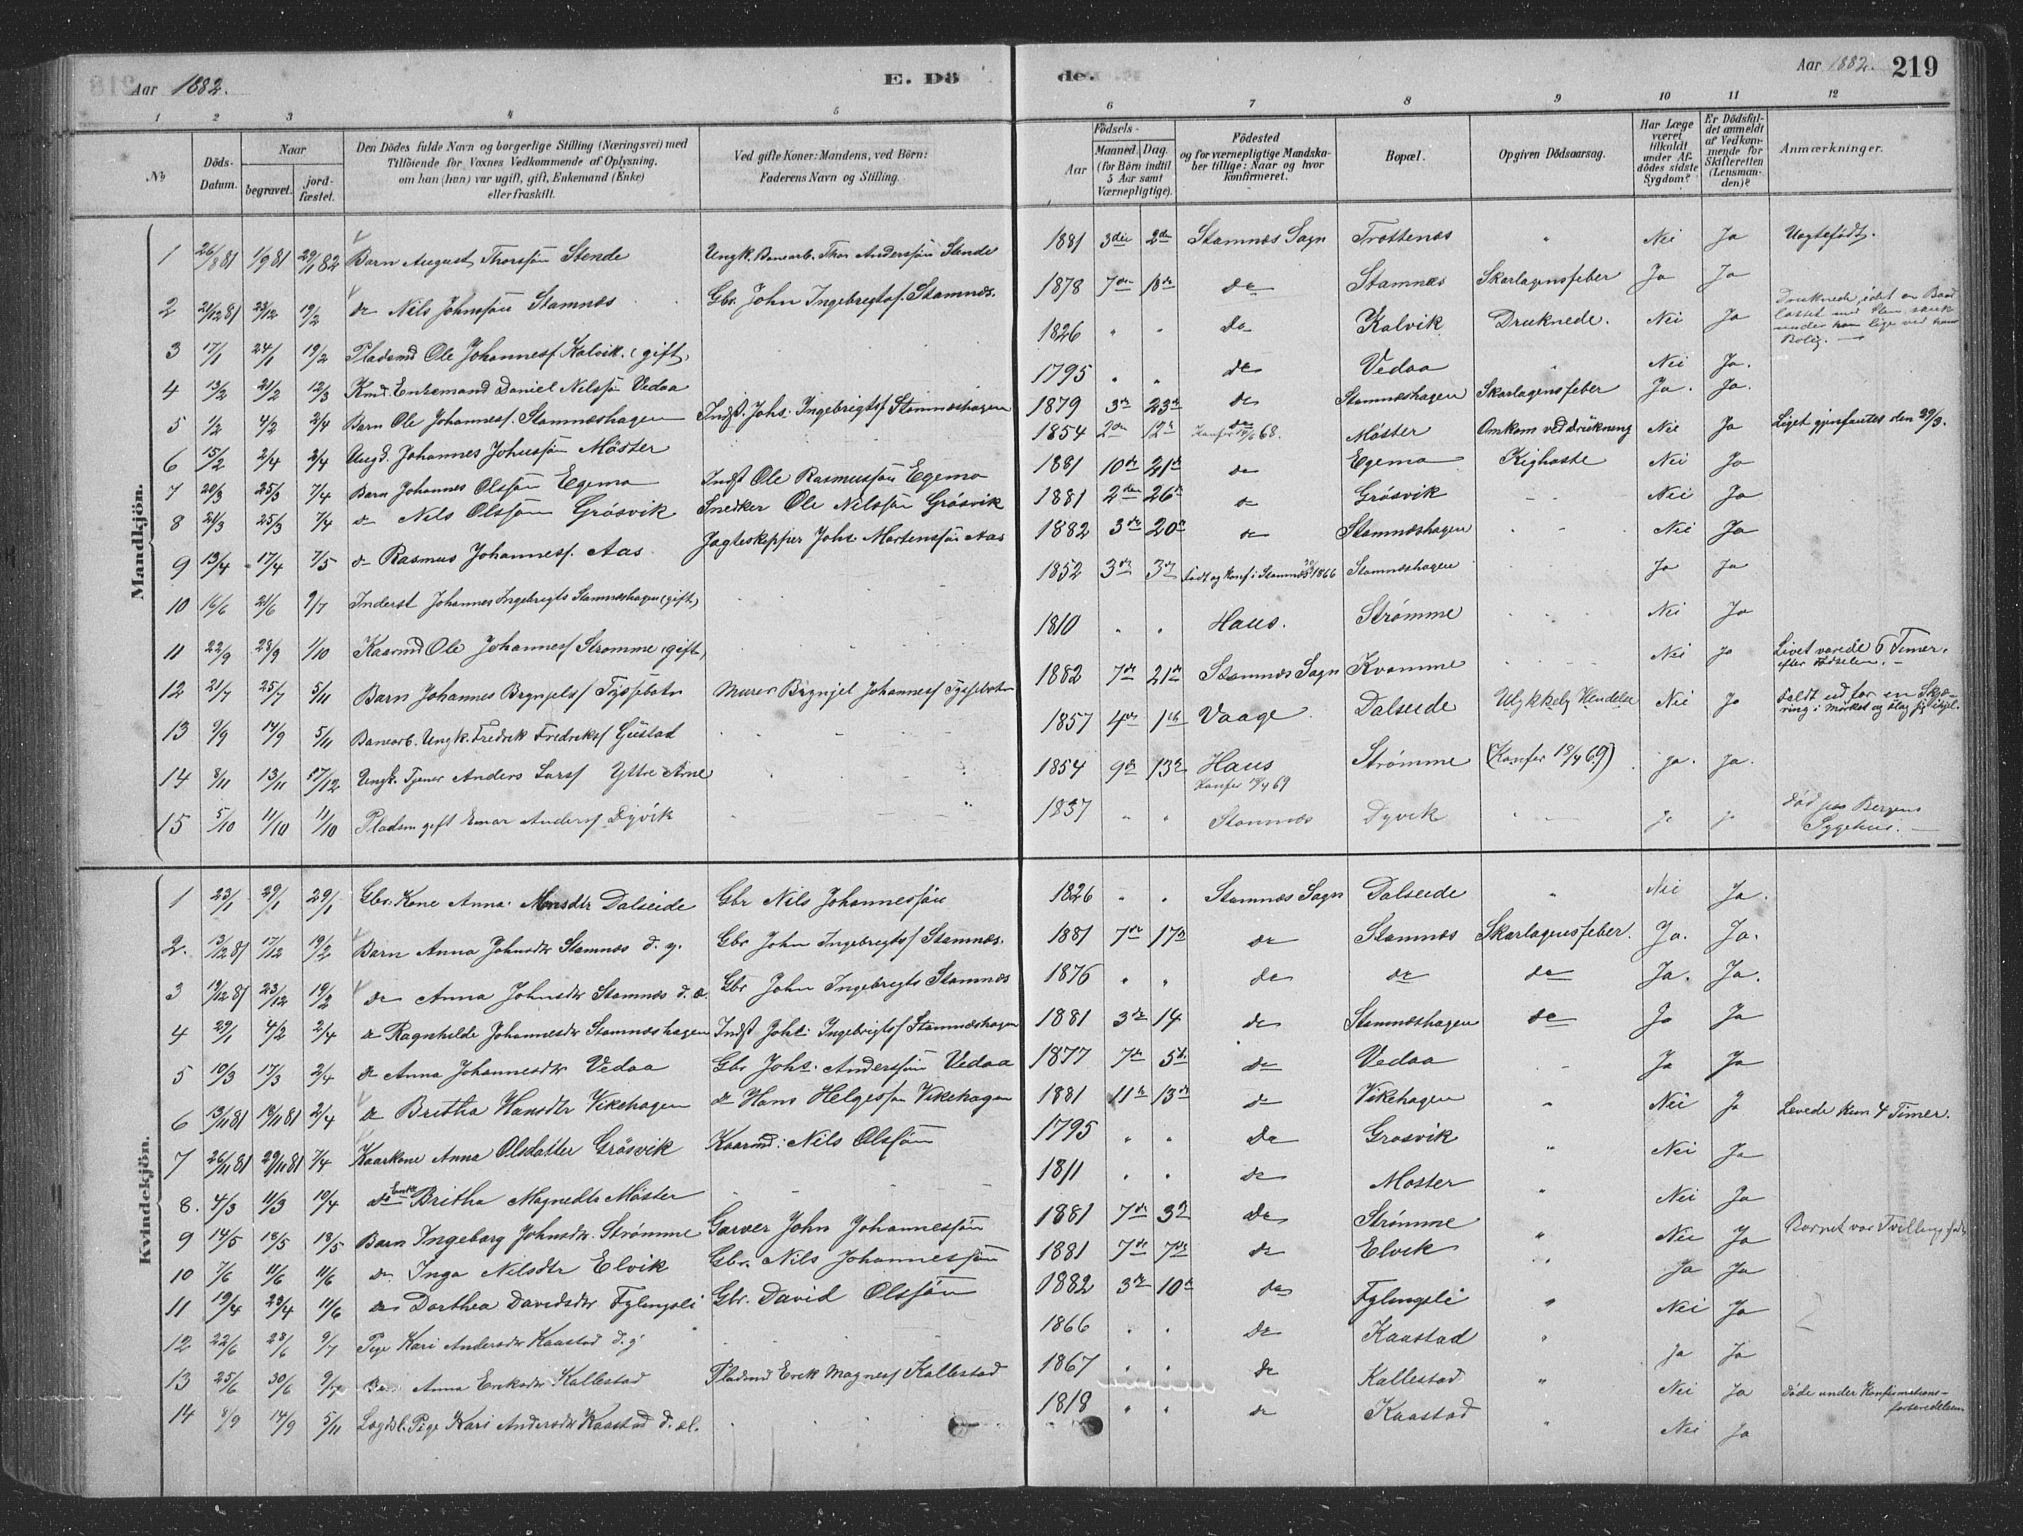 Aar 1882.
E. Dö
de.
Aar 1882.
219
1 2 3 4 5 6 7 8 9 10 11 12
№
Döds-Datum.
Naar
begravet.
jordfæstet.
Den Dödes fulde Navn og borgerlige Stilling (Næringsvei) med
Tilföiende for Voxnes Vedkommende af Oplysning,
om han (hun) var ugift, gift, Enkemand (Enke)
eller fraskilt.
Ved gifte Koner: Mandens, ved Börn:
Faderens Navn og Stilling.
Födsels-
Aar
Maaned. Dag.
(for Börn indtil
5 Aar samt
Værnepligtige).
Födested
og for værnepligtige Mandska-
ber tillige: Naar og hvor
konfirmeret.
Bopæl.
Opgiven Dödsaarsag.
Har Læge
været
tilkaldt
under Af-
dödes sidste
Sygdom?
Er Dödsfal-
det anmeldt
af Vedkom-
mende for
Skifteretten
(Lensman-
den)?
Anmærkninger.
Mandkjön.
1 26/8 81 1/9 81 29/1 82 Barn August Thorssön Stende Ungk. Banearb. Thor Anderssön Stende 1881 3die 2den Stamnæs Sogn Trottenæs " Nei Ja Uegtefödt.
2 21/12 81 23/12 19/2 do Nils Johnssön Stamnæs Gbr. John Ingebrigtsf. Stamnæs. 1878 7de 18de do Stamnæs Skarlagensfeber Ja Ja
3 17/1 24/1 19/2 Pladsmd Ole Johannesf Kalvik. (gift) 1826 " " do Kalvik Druknede. Nei Ja Druknede, idet en Baad lastet med Sten, sank under ham lige ved hans Bolig.
4 13/2 21/2 12/3 Kmd. Enkemand Daniel Nilssön Vedaa 1795 " " do Vedaa " Nei Ja.
5 1/2 4/2 2/4 Barn Ole Johannesf. Stamnæshagen Indst. Johs. Ingebrigtsf Stamnæshagen 1879 3de 23de do Stamnæshagen Skarlagensfeber Ja. Ja.
6 15/2 2/4 2/4 Ungd. Johannes Johnssön Möster 1854 2den 12te do Möster Omkom ved drukning Nei Ja Liget gjenfantes den 29/3.
7 20/3 25/3 7/4 Barn Johannes Olssön Egemo Indst Ole Rasmussön Egemo 1881 10de 21de do Egemo Kighoste Nei Ja
8 21/3 25/3 7/4 do Nils Olssön Grösvik Snedker Ole Nilssön Grösvik 1881 2den 26de do Grösvik Nei Ja
9 13/4 17/4 7/5 do Rasmus Johannesf. Aas Jagteskipper Johs Martenssön Aas 1882 3de 20de do Stamnæshagen Nei Ja
10 16/6 21/6 9/7 Inderst Johannes Ingebrigts Stamnæshagen (gift) 1852 3de 3de född og Konf. i Stamnæs 1866 Stamnæshagen Ja Ja
11 22/9 28/9 1/10 Kaarmd Ole Johannesf Strömme (gift) 1810 " " Haus. Strømme Nei Ja
12 21/7 25/7 5/11 Barn Johannes Brynjelsf Tyssebotn Murer Brynjel Johannesf Tyssebotn 1882 7de 21de Stamnæs Sogn Kvamme Nei Ja Livet varede 6 Timer. efter Födselen.
13 9/9 14/9 5/11 Banearb. Ungk. Fredrik Fredriksf Gustad 1857 4de 1ste Vaage Dalseide Ulykkelig Hendelse Nei Ja Faldt ud for en Skjæring i Mørket og slog sig ihjel.
14 8/11 13/11 17/12 Ungk. Tjener Anders Larsf Yttre Arne 1854 9de 13de Haus Konfir 18/4 69 Strømme (Konfir 18/4 69) ja. Ja.
15 5/10 11/10 11/10 Pladsm gift Einar Andersf Dyvik 1837 " " Stamnæs Dyvik ja ja Död paa Bergens Sygehus.
Kvindekjön.
1 23/1 29/1 29/1 Gbr. Kone Anna Monsdtr Dalseide Gbr Nils Johannessön 1826 " " Stamnæs Sogn Dalseide " Nei Ja.
2. 13/12 81 17/12 19/2 Barn Anna Johnsdtr Stamnæs d. y. Gbr John Ingebrigtsf Stamnæs. 1881 7de 17de do Stamnæs Skarlagensfeber. Ja. Ja.
3 19/12 81 23/12 19/2 do Anna Johnsdtr Stamnæs d. æ. Gbr John Ingebrigts Stamnæs 1876 " " do do do Ja. Ja.
4 29/1 4/2 2/4 do Ragnhilde Johannesdtr Stamnæshagen Indst Johs: Ingebrigtsf Stamnæshagen 1881 3de 14 do Stamnæshagen do Ja Ja
5 10/3 17/3 2/4 do Anna Johannesdtr Vedaa Gbr Johs. Anderssön Vedaa 1877 7de 5te do Vedaa Ja Ja
6 13/11 81 18/11 81 2/4 do Britha Hansdtr Vikehagen do Hans Helgesson Vikehagen 1881 11te 13de do Vikehagen " Nei Ja Levede kun 4 Timer.
7 26/11 81 29/11 81 7/4 Kaarkone Anna Olsdatter Grösvik Kaarmd: Nils Olssön 1795 " " do Grosvik " Nei Ja
8. 4/3 11/3 10/4 do Enke Britha Magnedtr Möster 1811 " " do Moster " Nei Ja
9 14/5 18/5 18/5 Barn Ingeborg Johnsdtr. Strømme Garver John Johannessön 1881 7de 3d do Strømme " Nei Ja Barnet var Tvilling
10 7/6 11/6 11/6 do Inga Nilsdtr Elvik Gbr. Nils Johannessön 1881 7de 7de do Elvik " Ja Ja
11 19/4 23/4 11/6 do Dorthea Davidsdtr Fylingsli Gbr. David Olssön 1882 3de 10de do Fylingsli " Nei Ja
12 22/6 28/6 9/7 Pige Kari Andersdtr Kaastad d. y 1866 " " do Kaastad " Ja Ja
13 25/6 30/6 9/7 Barn Anna Eriksdtr Kallestad Pladsmd Erik Magnesf Kallestad 1867 " " do Kallestad " Nei Ja Döde under Konfirmations-forberedelsen
14 8/9 14/9 5/11 Logdsl. Pige Kari Andersdtr Kaastad d. æl. 1818 " " do Kaastad " Nei Ja